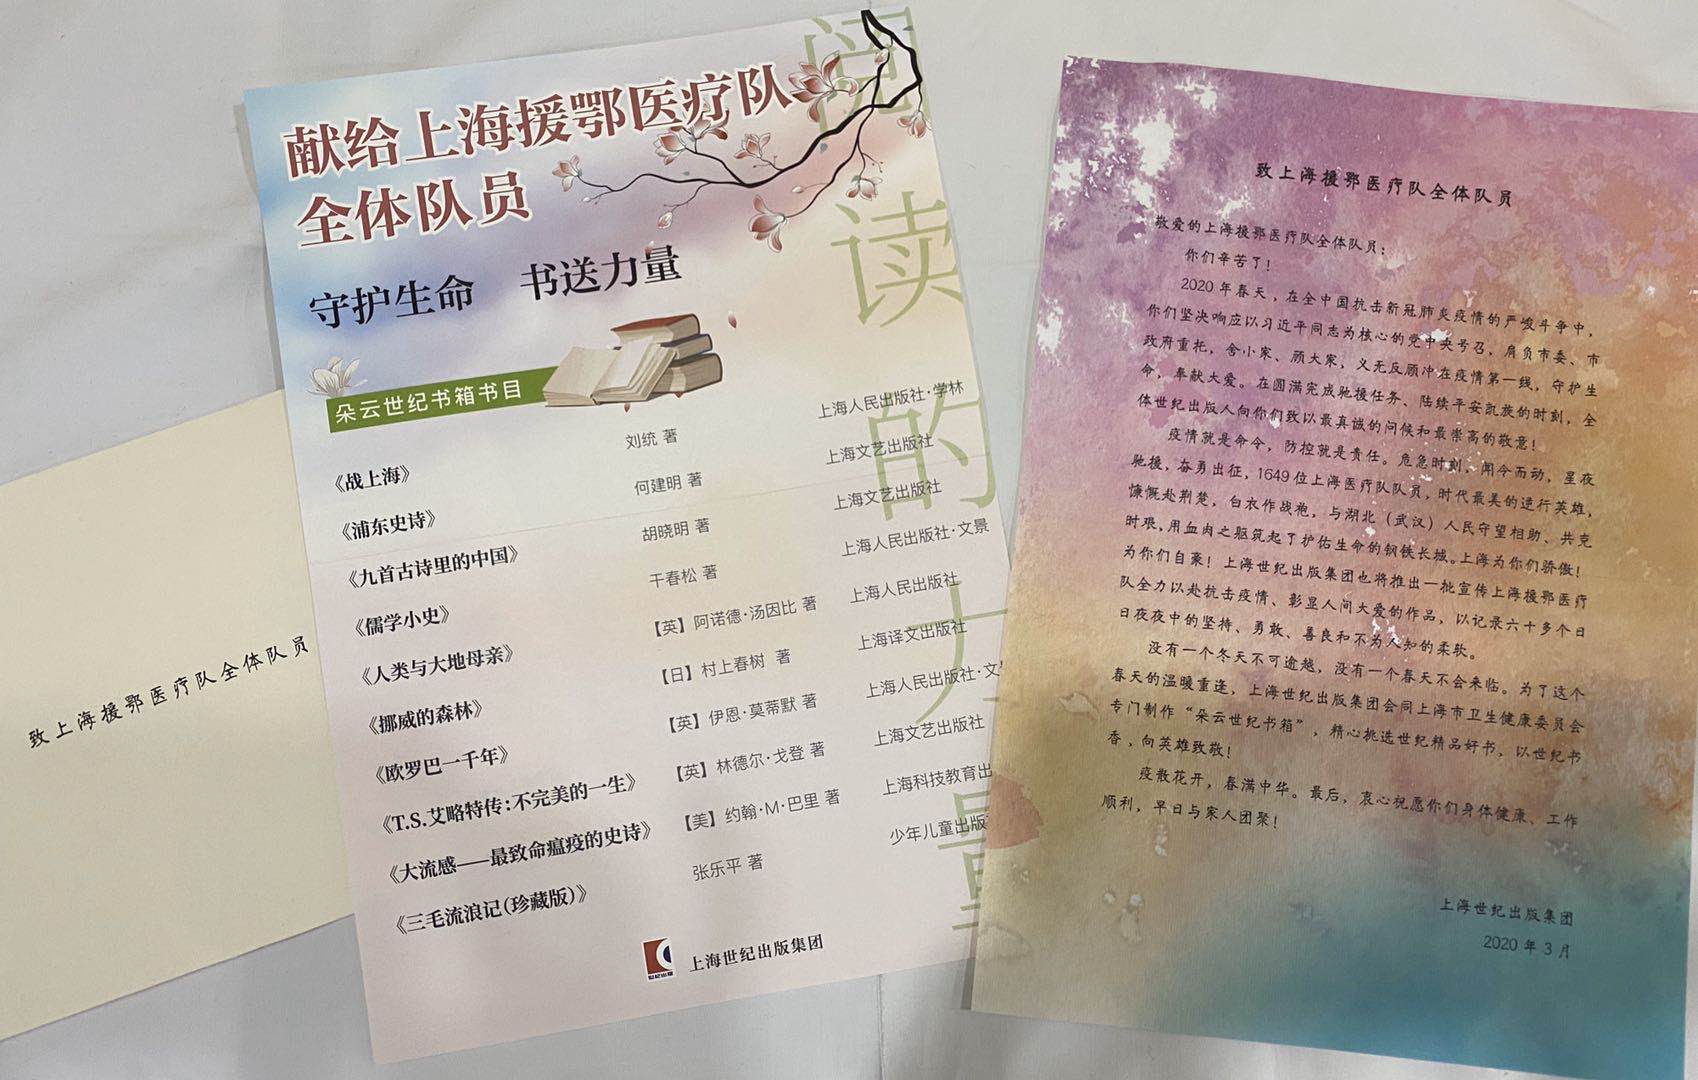 致上海援鄂医疗队全体队员
献给上海援鄂医疗队
全体队员
守护生命 书送力量
阅读的力量
朵云世纪书箱书目
《战上海》 刘统 著 上海人民出版社·学林
《浦东史诗》 何建明 著 上海文艺出版社
《九首古诗里的中国》 胡晓明 著 上海文艺出版社
《儒学小史》 干春松 著 上海人民出版社·文景
《人类与大地母亲》 【英】阿诺德·汤因比 著 上海人民出版社
《挪威的森林》 【日】村上春树 著 上海译文出版社
《欧罗巴一千年》 【英】伊恩·莫蒂默 著 上海人民出版社·文
《T.S.艾略特传:不完美的一生》 【英】林德尔·戈登 著 上海文艺出版社
《大流感——最致命瘟疫的史诗》 【美】约翰·M·巴里 著 上海科技教育出
《三毛流浪记(珍藏版)》 张乐平 著 少年儿童出版
世纪出版
上海世纪出版集团
致上海援鄂医疗队全体队员
敬爱的上海援鄂医疗队全体队员:
你们辛苦了!
2020年春天,在全中国抗击新冠肺炎疫情的严峻斗争中,
你们坚决响应以习近平同志为核心的党中央号召,肩负市委、市
政府重托,舍小家、顾大家,义无反顾冲在疫情第一线,守护生
命,奉献大爱。在圆满完成驰援任务、陆续平安凯旋的时刻,全
体世纪出版人向你们致以最真诚的问候和最崇高的敬意!
疫情就是命令,防控就是责任。危急时刻,闻令而动,星夜
驰援,奋勇出征,1649位上海医疗队队员,时代最美的逆行英雄,
慷慨赴荆楚,白衣作战袍,与湖北(武汉)人民守望相助、共克
时艰,用血肉之躯筑起了护佑生命的钢铁长城。上海为你们骄傲!
为你们自豪!上海世纪出版集团也将推出一批宣传上海援鄂医疗
队全力以赴抗击疫情、彰显人间大爱的作品,以记录六十多个日
日夜夜中的坚持、勇敢、善良和不为人知的柔软。
没有一个冬天不可逾越,没有一个春天不会来临。为了这个
春天的温暖重逢,上海世纪出版集团会同上海市卫生健康委员会
专门制作“朵云世纪书箱”,精心挑选世纪精品好书,以世纪书
香,向英雄致敬!
疫散花开,春满中华。最后,衷心祝愿你们身体健康、工作
顺利,早日与家人团聚!
上海世纪出版集团
2020年3月